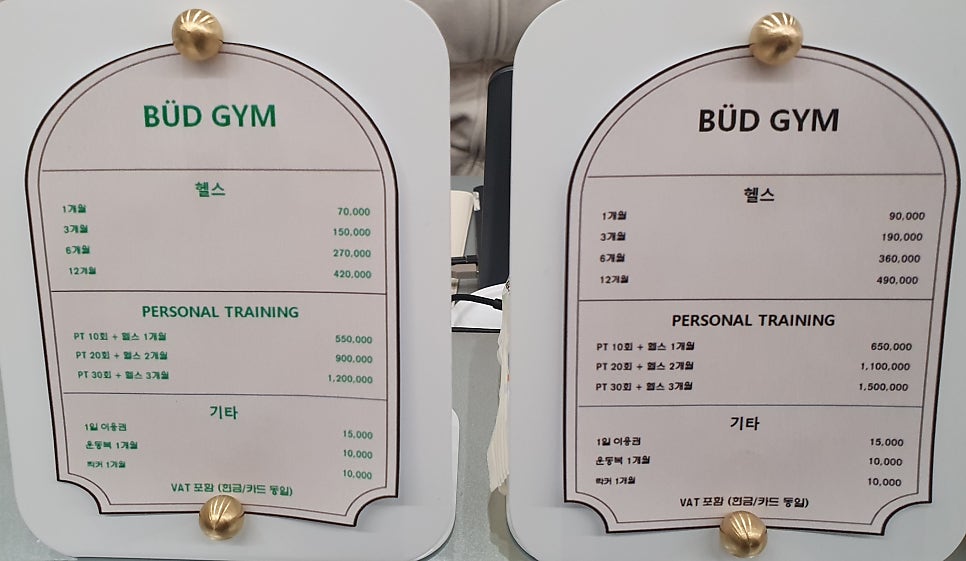 BÜD GYM
헬스
1개월 70,000
3개월 150,000
6개월 270,000
12개월 420,000
PERSONAL TRAINING
PT 10회 + 헬스 1개월 550,000
PT 20회 + 헬스 2개월 900,000
PT 30회 + 헬스 3개월 1,200,000
기타
1일 이용권 15,000
운동복 1개월 10,000
락커 1개월 10,000
VAT 포함 (현금/카드 동일)
BÜD GYM
헬스
1개월 90,000
3개월 190,000
6개월 360,000
12개월 490,000
PERSONAL TRAINING
PT 10회 + 헬스 1개월 650,000
PT 20회 + 헬스 2개월 1,100,000
PT 30회 + 헬스 3개월 1,500,000
기타
1일 이용권 15,000
운동복 1개월 10,000
락커 1개월 10,000
VAT 포함 (현금/카드 동일)